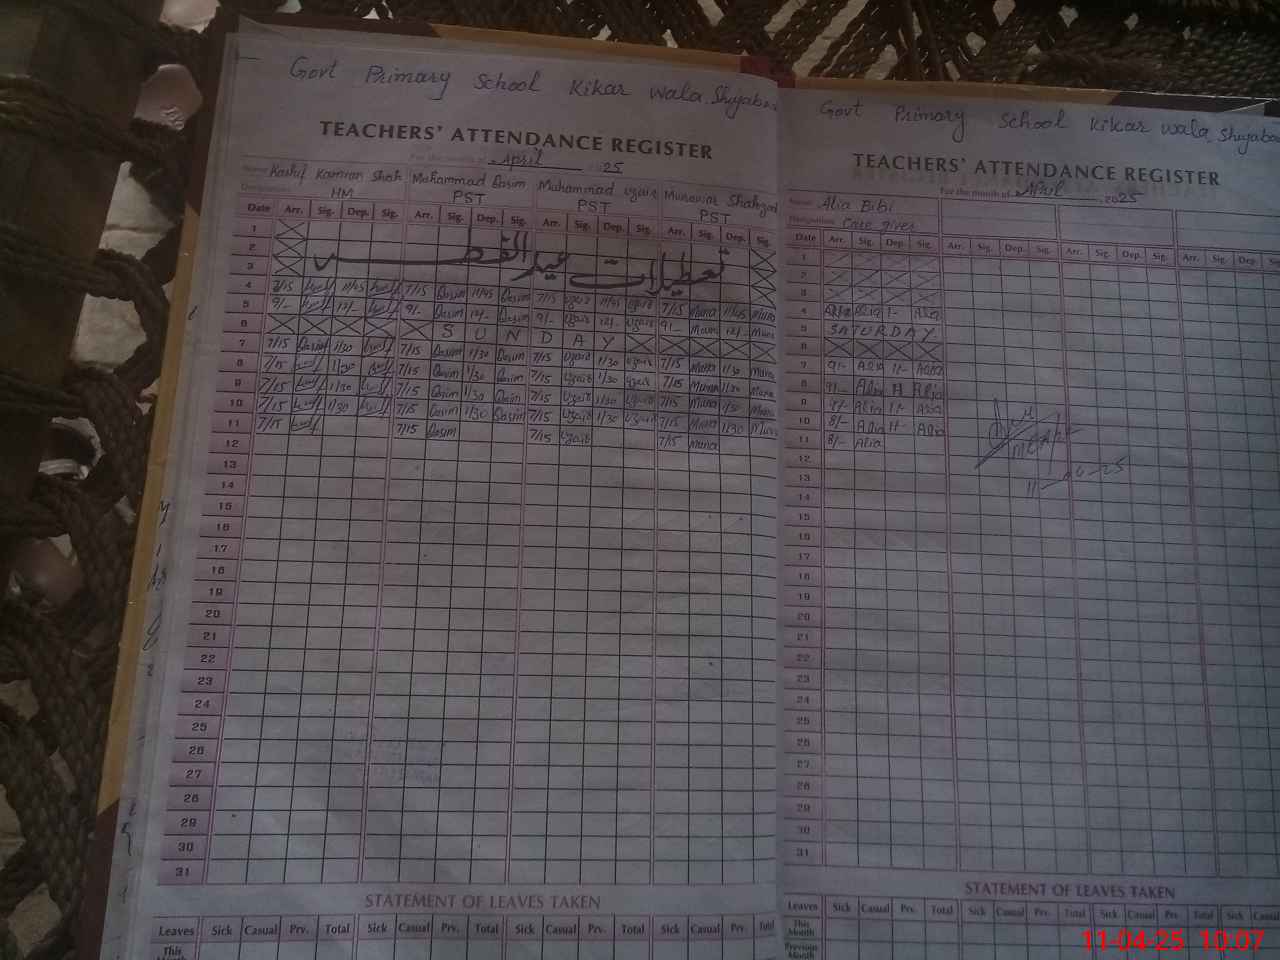 Govt Primary School Kikar Wala, Shujabad
TEACHERS' ATTENDANCE REGISTER
For the month of April 2025
Name Kashif Kamran Shah Muhammad Qasim Muhammad Uzair Munawar Shahzad
Designation HM PST PST PST
Date Arr. Sig. Dep. Sig. Arr. Sig. Dep. Sig. Arr. Sig. Dep. Sig. Arr. Sig. Dep. Sig.
1
2 تعطیلات عید الفطر
3
4 7/15 11/45 7/15 Qasim 11/45 Qasim 7/15 Uzair 11/45 Uzair 7/15 Muna 11/45 Muna
5 9/- 12/- 9/- Qasim 12/- Qasim 9/- Uzair 12/- Uzair 9/- Muna 12/- Muna
6 SUNDAY
7 7/15 1/30 7/15 Qasim 1/30 Qasim 7/15 Uzair 1/30 Uzair 7/15 Muna 1/30 Muna
8 7/15 1/30 7/15 Qasim 1/30 Qasim 7/15 Uzair 1/30 Uzair 7/15 Muna 1/30 Muna
9 7/15 1/30 7/15 Qasim 1/30 Qasim 7/15 Uzair 1/30 Uzair 7/15 Muna 1/30 Muna
10 7/15 1/30 7/15 Qasim 1/30 Qasim 7/15 Uzair 1/30 Uzair 7/15 Muna 1/30 Muna
11 7/15 7/15 Qasim 7/15 Uzair 7/15 Muna
12
13
14
15
16
17
18
19
20
21
22
23
24
25
26
27
28
29
30
31
STATEMENT OF LEAVES TAKEN
Leaves Sick Casual Prv. Total Sick Casual Prv. Total Sick Casual Prv. Total Sick Casual Prv. Total
This Month
Govt Primary School Kikar Wala, Shujabad
TEACHERS' ATTENDANCE REGISTER
For the month of April 2025
Name Alia Bibi
Designation Care giver
Date Arr. Sig. Dep. Sig. Arr. Sig. Dep. Sig. Arr. Sig. Dep. Sig. Arr. Sig. Dep. Sig.
1
2
3
4 Alia 1/- Alia
5 SATURDAY
6
7 9/- Alia 11/- Alia
8 9/- Alia 11 Alia
9 8/- Alia 11/- Alia
10 8/- Alia 11/- Alia
11 8/- Alia
12 MEA
13 11-04-25
14
15
16
17
18
19
20
21
22
23
24
25
26
27
28
29
30
31
STATEMENT OF LEAVES TAKEN
Leaves Sick Casual Prv. Total Sick Casual Prv. Total Sick Casual Prv. Total Sick Casual
This Month
Previous Month
11-04-25 10:07